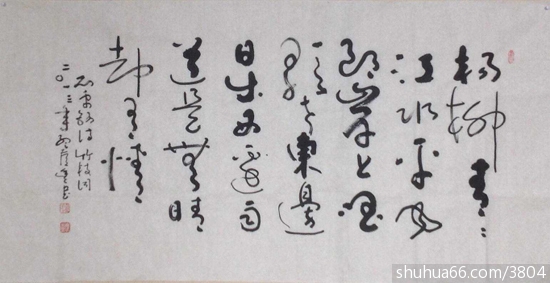 楊柳青〻
江水平闻
郎岸上唱
歌声東邊
日出西邊雨
道是無晴
却有情
刘禹錫詩竹枝詞
二〇一三年
shuhua66.com/3804